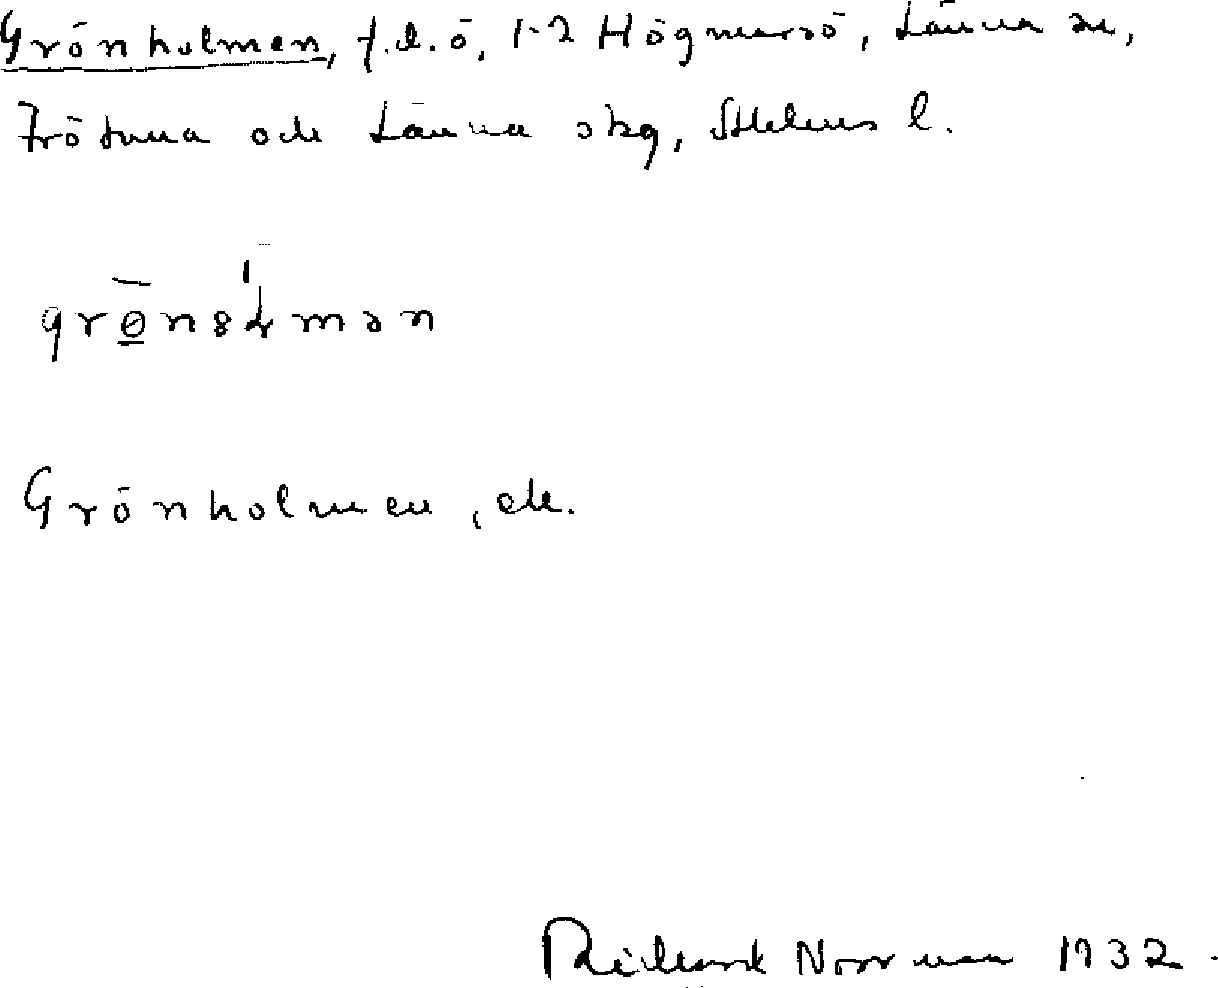 Grönholmen, f.d. ö, 1-2 Högmarsö, Länna sn,
Frötuna och Länna skg, Sthlms l.
Grönholmen, ek.
Rickard Norrman 1932.